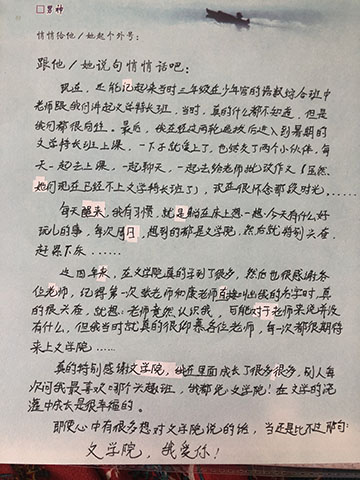 □男神
悄悄给他/她起个外号：
跟他/她说句悄悄话吧：
现在，还能记起来当时三年级在少年宫的语数综合班中
老师跟我们讲起文学特长班，当时，真的什么都不知道，但是
我们都很向往。最后，我在经过两轮选拔后进入到暑期的
文学特长班上课，一下子就爱上了，也结交了两个小伙伴，每
天一起去上课，一起聊天，一起去给老师批改作文（虽然
她们现在已经不上文学特长班了），我还很怀念那段时光……
每天醒来，我有习惯，就是躺在床上想一想今天有什么好
玩儿的事，每次周日，想到的都是文学院，然后就特别兴奋，
赶紧下床……
这四年来，在文学院真的学到了很多，然后也很感谢各
位老师，记得第一次张老师和康老师直接叫出我的名字时，真
的很兴奋，就想：老师竟然认识我，可能对于老师来说并没
有什么，但我当时就真的很仰慕各位老师，每一次都很期待
来上文学院……
真的特别感谢文学院，我在里面成长了很多很多，别人每
次问我最喜欢哪个兴趣班，我都说文学院！在文学的泥
中成长是很幸福的。
即使心中有很多想对文学院说的话，当还是比不过那句：
文学院，我爱你！